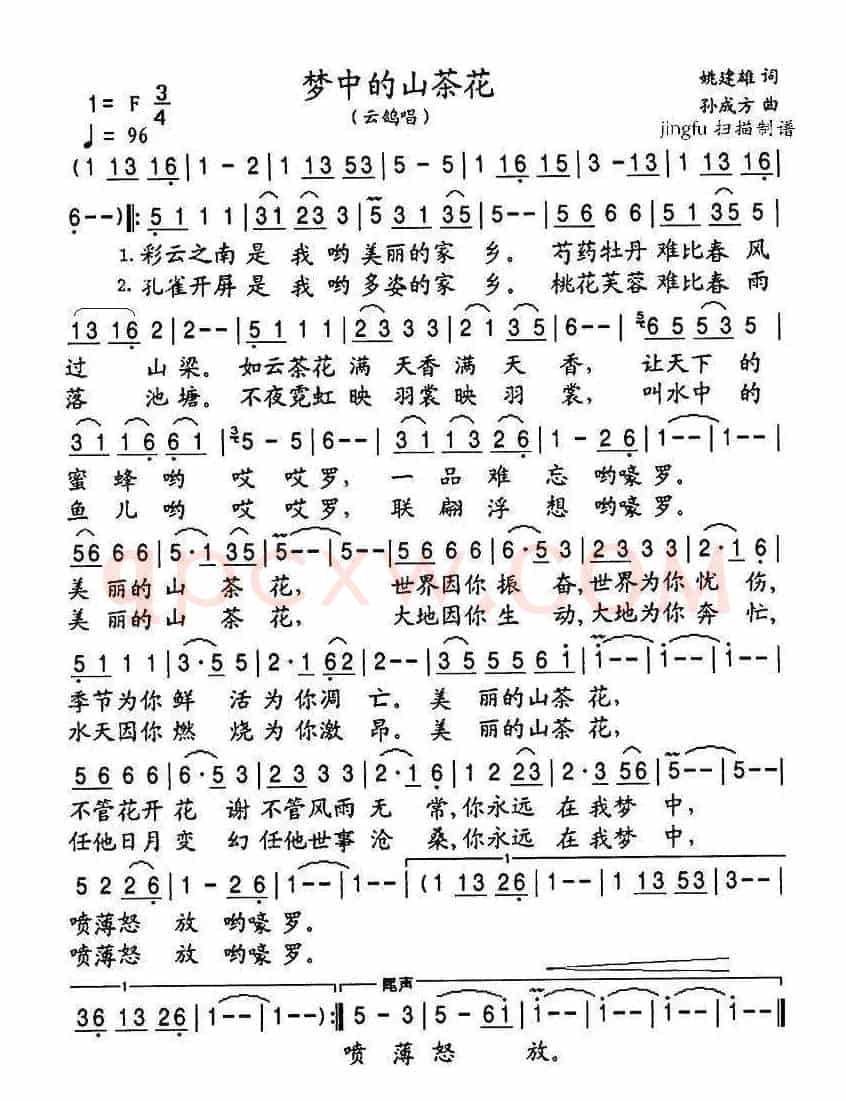 梦中的山茶花
(云鸽唱)
姚建雄 词
孙成方 曲
jingfu 扫描制谱
1= F 3/4
♩= 96
(1 13 16|1 - 2|1 13 53|5 - -|1 16 15|3 - 13|1 - -|1 13 16|
6 - -)‖:5 1 1 1|31 23 3|5 31 35|5 - -|5 6 6 6|5 1 35 5|
1.彩云之南是 我 哟 美丽的家 乡。 芍药牡丹 难比春 风
2.孔雀开屏是 我 哟 多姿的家 乡。 桃花芙蓉 难比春 雨
13 16 2|2 - -|5 1 1 1|2 3 3 3|2 31 35|6 - -|6 5 5 3 5|
过 山 梁。 如云茶花 满 天香 满 天 香, 让天下 的
落 池 塘。 不夜霓虹 映 羽裳 映 羽 裳, 叫水中 的
31 16 61|5 - 5|6 - -|31 13 26|1 - 26|1 - -|1 - -|
蜜 蜂 哟 哎 哎罗, 一 品 难 忘 哟嚎 罗。
鱼 儿 哟 哎 哎罗, 联 翩 浮 想 哟嚎 罗。
56 6 6|5·1 35|5 - -|5 - -|5 6 6 6|6·5 3|2 3 3 3|2·1 6|
美 丽的 山 茶 花, 世界因你 振 奋,世界为你 忧 伤,
美 丽的 山 茶 花, 大地因你 生 动,大地为你 奔 忙,
5 1 1 1|3·5 5|2·1 62|2 - -|35 5 5 6 1|1 - -|1 - -|
季节为你 鲜 活 为 你凋 亡。 美 丽的山茶 花,
水天因你 燃 烧 为 你激 昂。 美 丽的山茶 花,
5 6 6 6|6·5 3|2 3 3 3|2·1 6|1 2 23|2·3 56|5 - -|5 - -|
不管花开 花 谢 不管风雨 无 常,你永远 在 我梦 中,
任他日月 变 幻 任他世事 沧 桑,你永远 在 我梦 中,
5 2 2 6|1 - 2 6|1 - -|1 - -|(1 13 26|1 - -|1 13 53|3 - -|
1
喷薄怒 放 哟嚎 罗。
喷薄怒 放 哟嚎 罗。
1
尾声
36 13 26|1 - -|1 - -):‖5 - 3|5 - 61|1 - -|1 - -|1 - -|1 - -‖
喷 薄 怒 放。
qpcxw.com